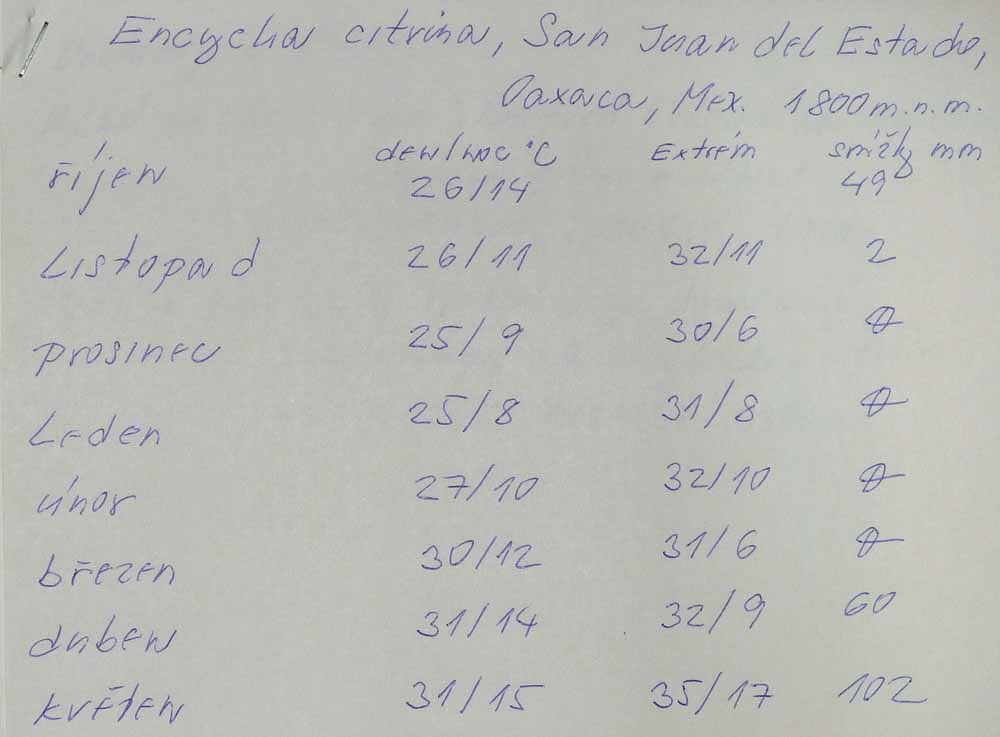 Encyclia citrina, San Juan del Estado,
Oaxaca, Mex. 1800 m.n.m.
den/noc °C Extrém srážky mm
říjen 26/14 49
Listopad 26/11 32/11 2
prosinec 25/9 30/6 0
Leden 25/8 31/8 0
únor 27/10 32/10 0
březen 30/12 31/6 0
duben 31/14 32/9 60
květen 31/15 35/17 102